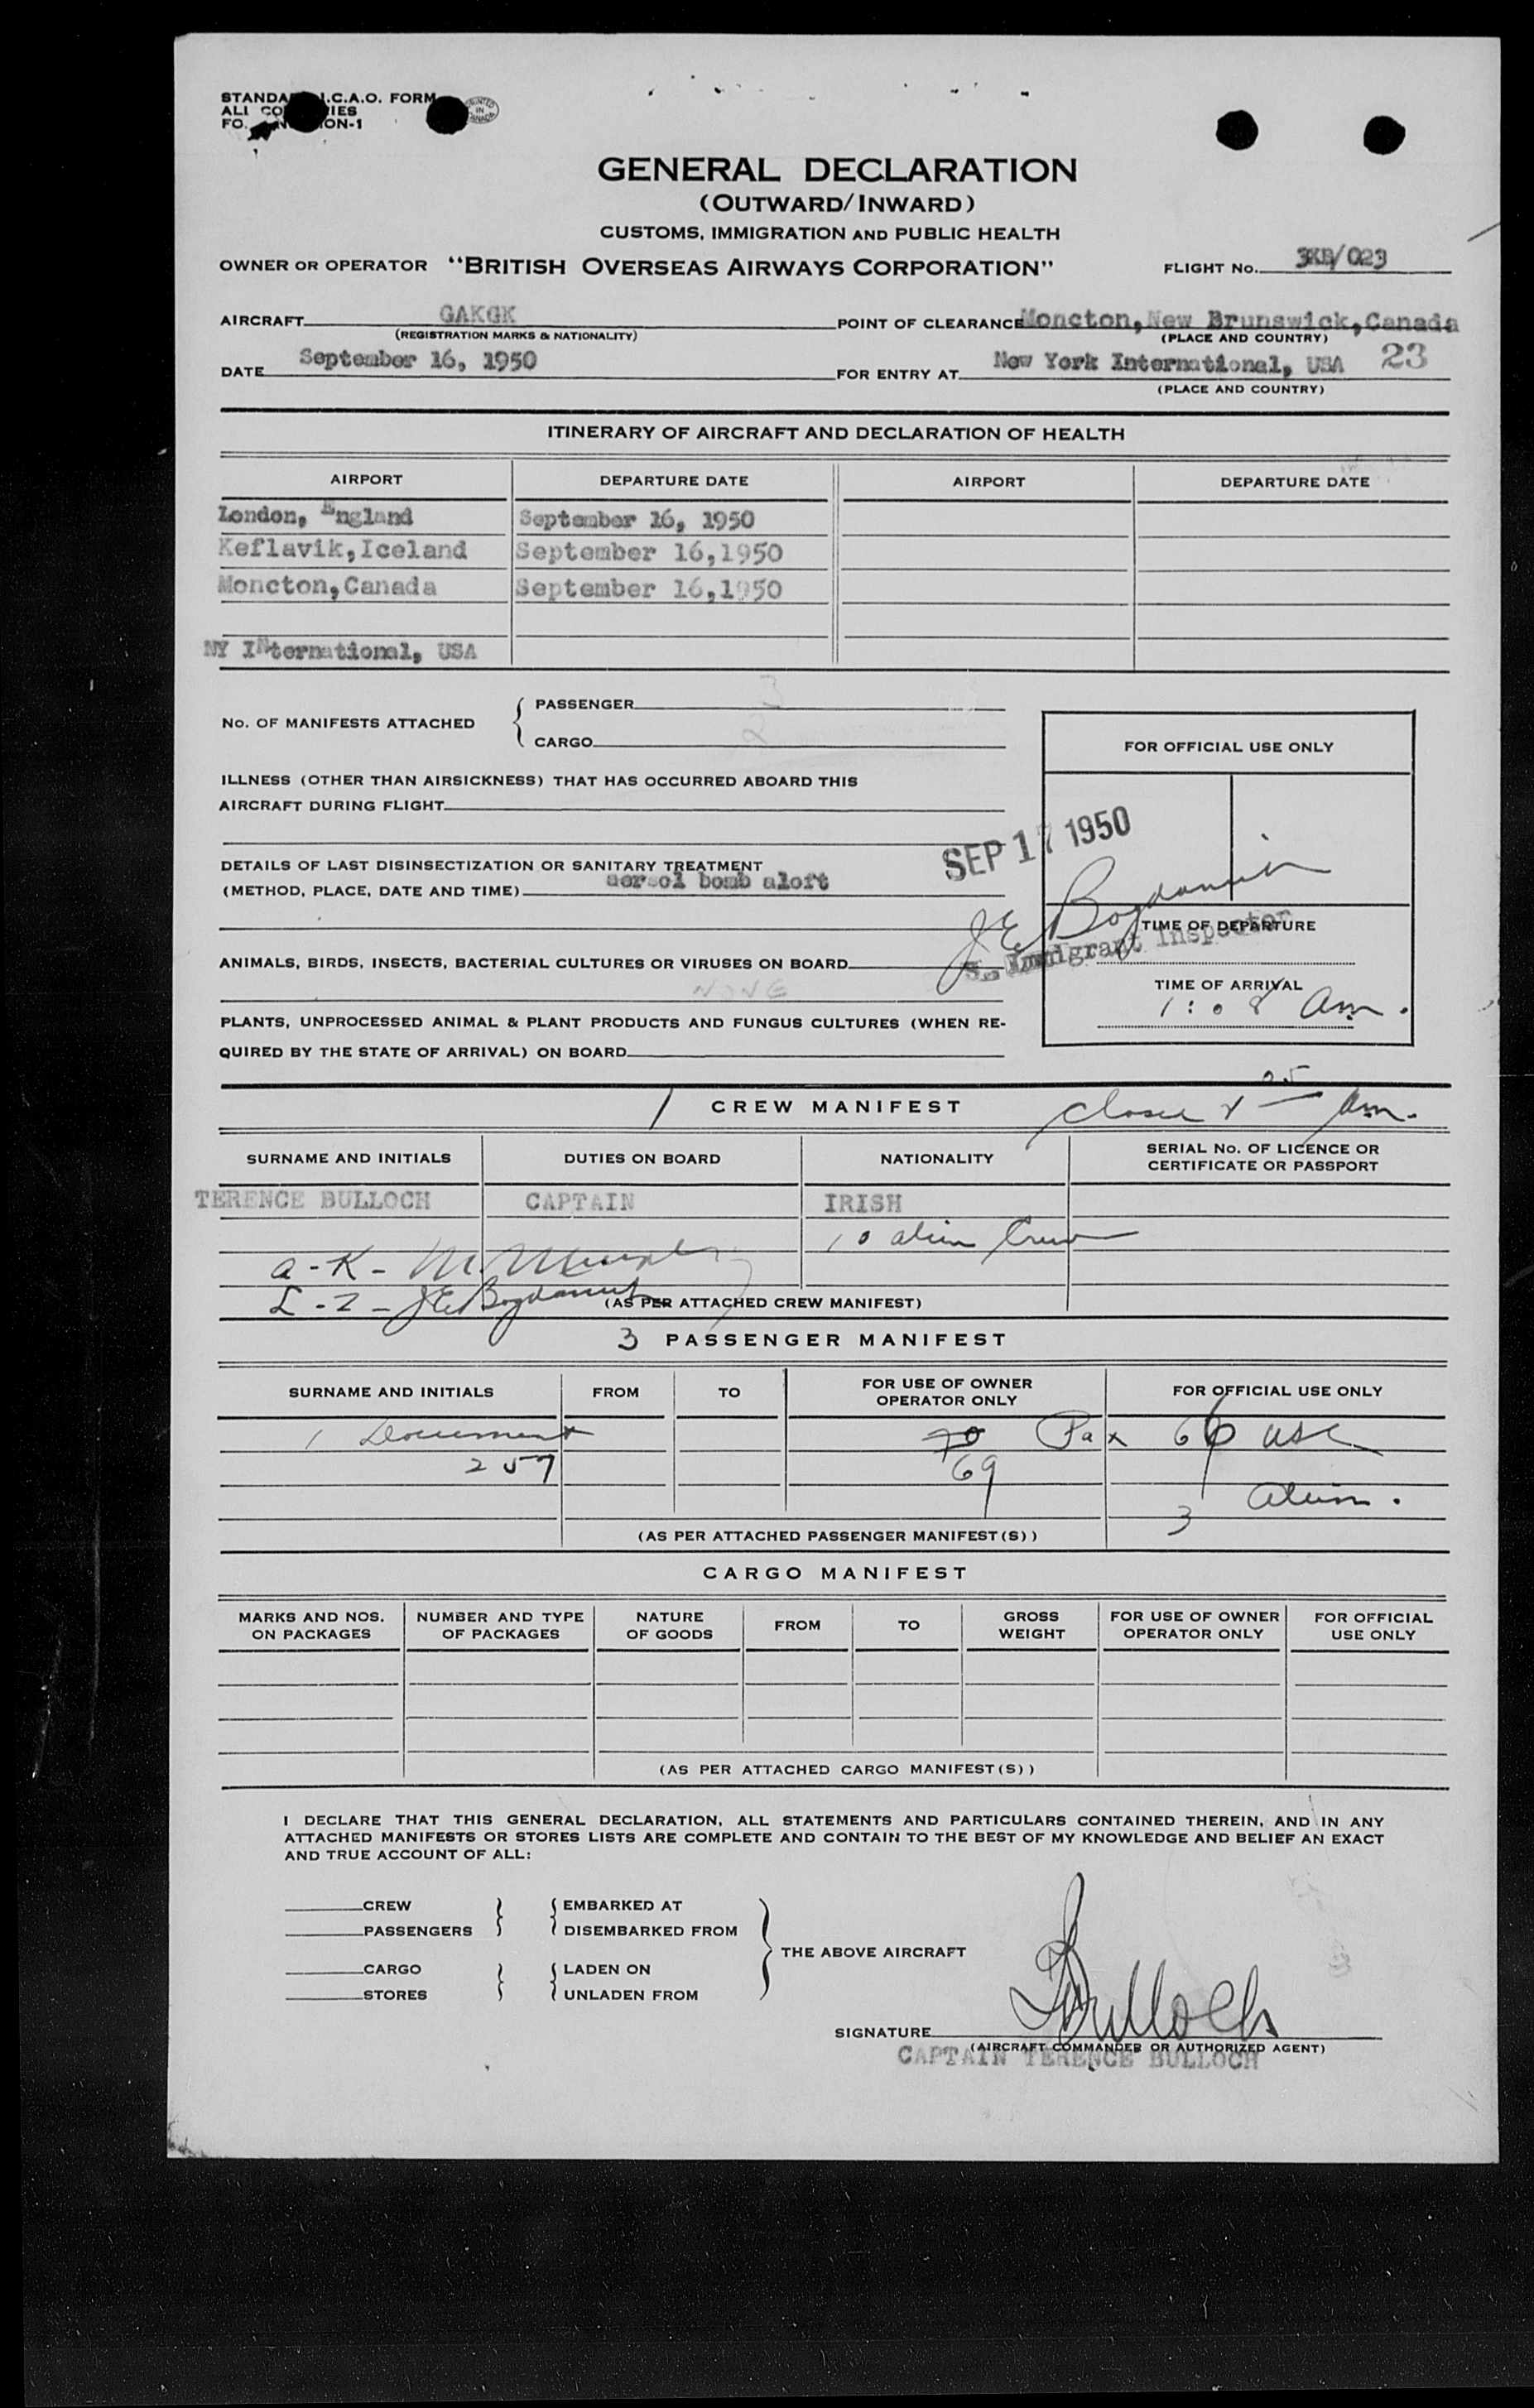 STANDA I.C.A.O. FORM
ALL CO IES
FO. ON-1
PRINTED IN CANADA
GENERAL DECLARATION
(OUTWARD/INWARD)
CUSTOMS, IMMIGRATION AND PUBLIC HEALTH
OWNER OR OPERATOR "BRITISH OVERSEAS AIRWAYS CORPORATION" FLIGHT No. /023
AIRCRAFT GAKGK POINT OF CLEARANCE Moncton, New Brunswick, Canada
(REGISTRATION MARKS & NATIONALITY) (PLACE AND COUNTRY)
DATE September 16, 1950 FOR ENTRY AT New York International, USA 23
(PLACE AND COUNTRY)
ITINERARY OF AIRCRAFT AND DECLARATION OF HEALTH
AIRPORT DEPARTURE DATE AIRPORT DEPARTURE DATE
London, England September 16, 1950
Keflavik,Iceland September 16,1950
Moncton,Canada September 16,1950
NY INternational, USA
No. OF MANIFESTS ATTACHED
PASSENGER 3
CARGO 2
FOR OFFICIAL USE ONLY
ILLNESS (OTHER THAN AIRSICKNESS) THAT HAS OCCURRED ABOARD THIS
AIRCRAFT DURING FLIGHT
SEP 17 1950
DETAILS OF LAST DISINSECTIZATION OR SANITARY TREATMENT
(METHOD, PLACE, DATE AND TIME) aersol bomb aloft
TIME OF DEPARTURE
S. Immigrant Inspector
ANIMALS, BIRDS, INSECTS, BACTERIAL CULTURES OR VIRUSES ON BOARD
NONE
TIME OF ARRIVAL
1:08 am.
PLANTS, UNPROCESSED ANIMAL & PLANT PRODUCTS AND FUNGUS CULTURES (WHEN RE-
QUIRED BY THE STATE OF ARRIVAL) ON BOARD
1 CREW MANIFEST
SURNAME AND INITIALS DUTIES ON BOARD NATIONALITY SERIAL No. OF LICENCE OR
CERTIFICATE OR PASSPORT
TERENCE BULLOCH CAPTAIN IRISH
10 alien Crew
(AS PER ATTACHED CREW MANIFEST)
3 PASSENGER MANIFEST
SURNAME AND INITIALS FROM TO FOR USE OF OWNER
OPERATOR ONLY FOR OFFICIAL USE ONLY
1 Document 70 Pax 66 USC
257 69
3 alien.
(AS PER ATTACHED PASSENGER MANIFEST(S))
CARGO MANIFEST
MARKS AND NOS.
ON PACKAGES
NUMBER AND TYPE
OF PACKAGES
NATURE
OF GOODS
FROM
TO
GROSS
WEIGHT
FOR USE OF OWNER
OPERATOR ONLY
FOR OFFICIAL
USE ONLY
(AS PER ATTACHED CARGO MANIFEST(S))
I DECLARE THAT THIS GENERAL DECLARATION, ALL STATEMENTS AND PARTICULARS CONTAINED THEREIN, AND IN ANY
ATTACHED MANIFESTS OR STORES LISTS ARE COMPLETE AND CONTAIN TO THE BEST OF MY KNOWLEDGE AND BELIEF AN EXACT
AND TRUE ACCOUNT OF ALL:
CREW EMBARKED AT
PASSENGERS DISEMBARKED FROM
THE ABOVE AIRCRAFT
CARGO LADEN ON
STORES UNLADEN FROM
SIGNATURE TBulloch
(AIRCRAFT COMMANDER OR AUTHORIZED AGENT)
CAPTAIN TERENCE BULLOCH